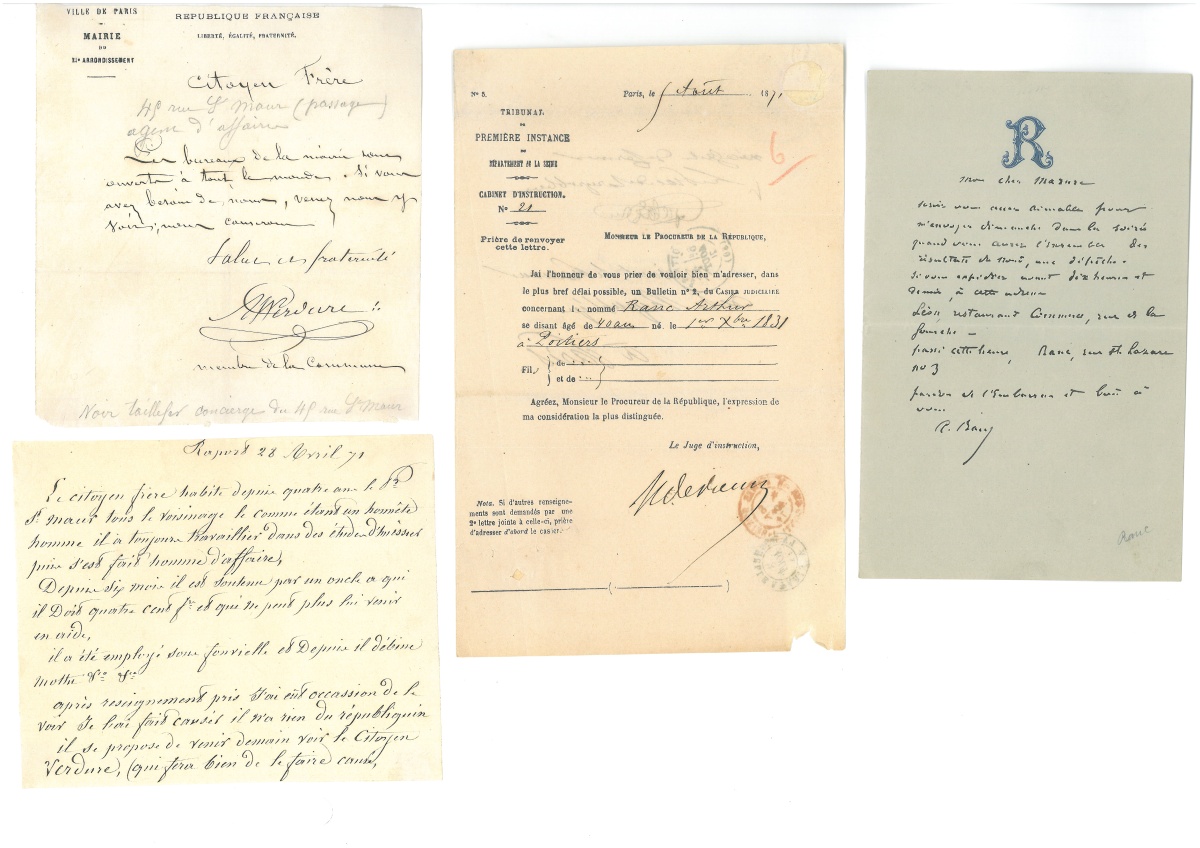 VILLE DE PARIS
MAIRIE
DU
XIe ARRONDISSEMENT
RÉPUBLIQUE FRANÇAISE
LIBERTÉ, ÉGALITÉ, FRATERNITÉ.
Citoyen Frère
45 rue St Maur (passage)
agent d'affaires
Les bureaux de la mairie sont
ouverts à tout le monde. Si vous
avez besoin de nous, venez nous y
voir, nous
Salut et fraternité
Verdure
membre de la Commune
Voir taillefer concierge du 45 rue St Maur
Raport 28 Avril 71
Le citoyen frère habite depuis quatre ans le
St maur tous le voisinage le conne étant un honnête
homme il à toujours travaillier dans des études d'huissier
puis s'est fait homme d'affaire,
Depuis six mois il est soutenu par un oncle a qui
il Doit quatre cent fr et qui ne peut plus lui venir
en aide,
il a été employé sous fonvielle et Depuis il débine
mottu
après renseignement pris J'ai eût occassion de le
voir Je l'ai fait causér il n'a rien du républiquin
il se propose de venir demain voir le Citoyen
Verdure, (qui fera bien de le faire causé,
No 5.
Paris, le 5 Août 1871
TRIBUNAL
DE
PREMIÈRE INSTANCE
DU
DÉPARTEMENT DE LA SEINE
CABINET D'INSTRUCTION.
No 21
Prière de renvoyer
cette lettre.
MONSIEUR LE PROCUREUR DE LA RÉPUBLIQUE,
Jai l'honneur de vous prier de vouloir bien m'adresser, dans
le plus bref délai possible, un Bulletin no 2, du CASIER JUDICIAIRE
concernant l nommé Ranc Arthur
se disant âgé de 40 ans né le 1er Xbre 1831
à Poitiers
Fil
de
et de
Agréez, Monsieur le Procureur de la République, l'expression de
ma considération la plus distinguée.
Le Juge d'instruction,
Nota. Si d'autres renseigne-
ments sont demandés par une
2e lettre jointe à celle-ci, prière
d'adresser d'abord le casier.
R
Mon cher Mazure
serez vous assez aimable pour
m'envoyer dimanche dans la soirée
quand vous aurez l'ensemble des
résultats du nord, une dépêche.
Si vous expédiez avant dix heures et
demie, à cette adresse
Léon, restaurant Commerce, rue de la
passé cette heure, Ranc, rue St Lazare
no 3
pardon de l'embarras et bien à
vous
A. Ranc
Ranc